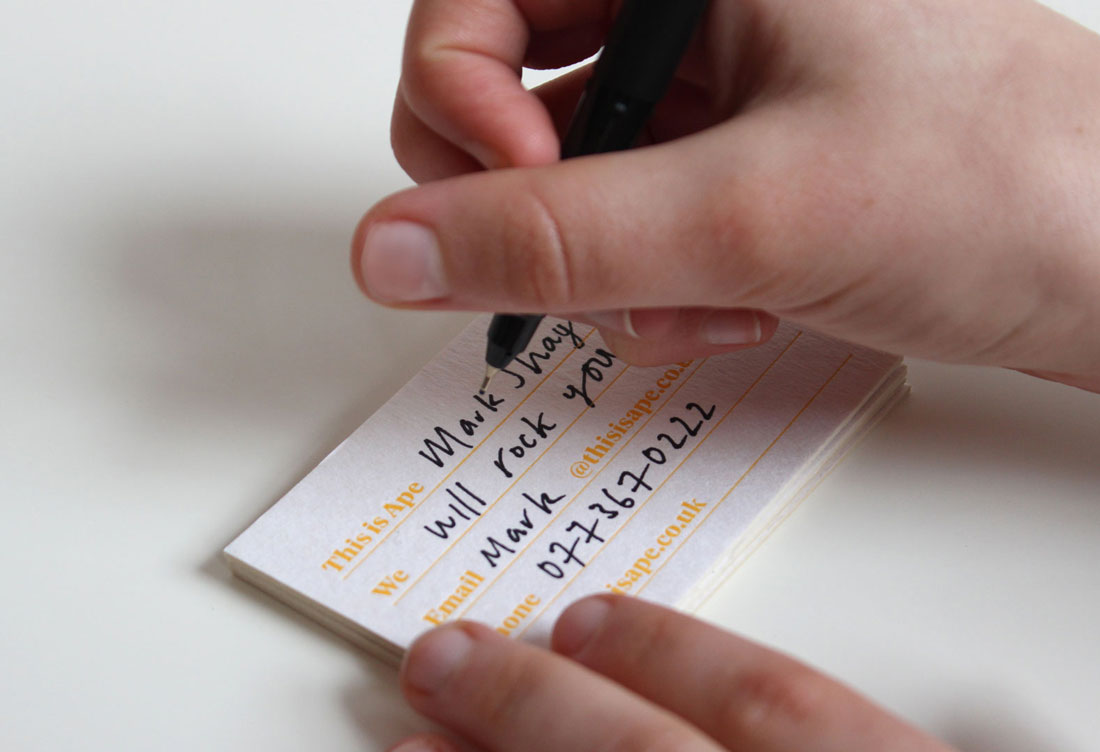 This is Ape Mark Shay
We will rock you
Email Mark @thisisape.co.u
hone 0773670222
isape.co.uk